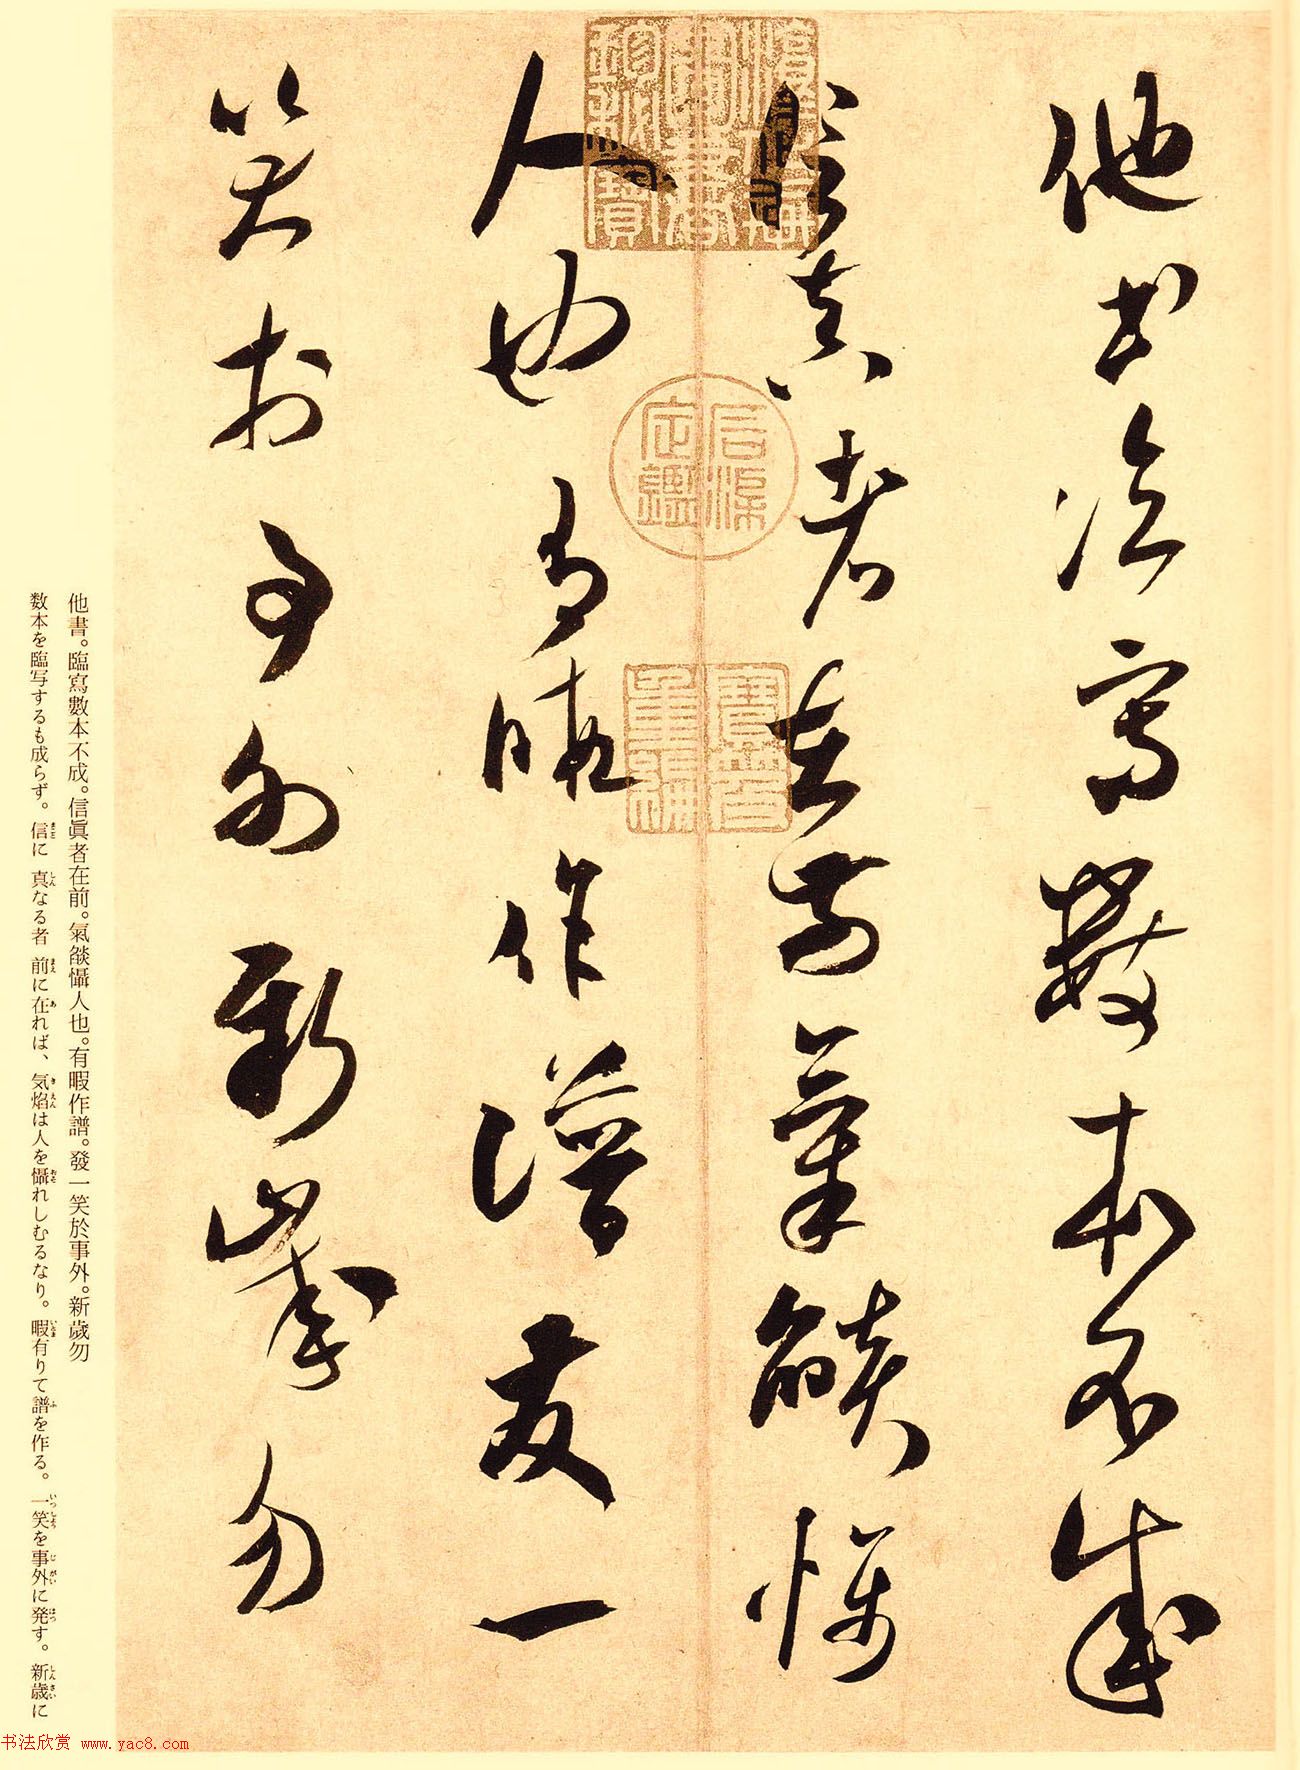 他書臨寫數本不成
信真者在前氣燄懾
人也有暇作譜發一
笑於事外新歲勿
他書。臨寫數本不成。信眞者在前。氣燄懾人也。有暇作譜。發一笑於事外。新歲勿
数本を臨写するも成らず。信に真なる者前に在れば、気焰は人を懾れしむるなり。暇有りて譜を作る。一笑を事外に発す。新歳に
书法欣赏 www.yac8.com